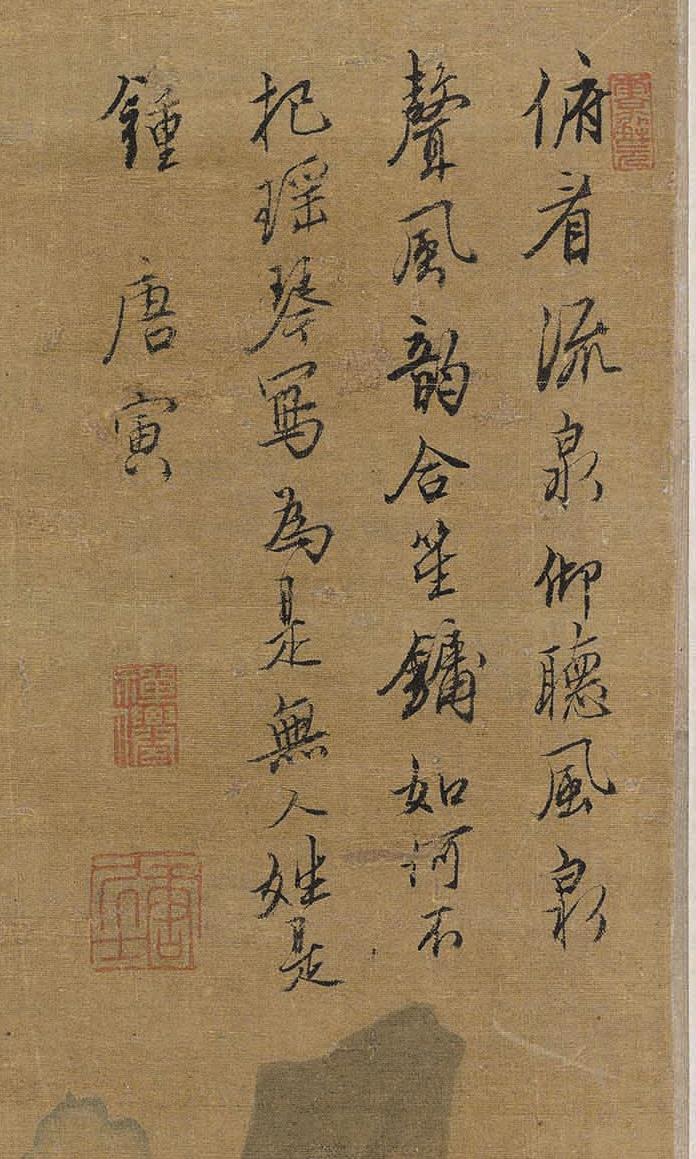 俯看流泉仰聽風泉
聲風韻合笙鏞如何不
把瑤琴寫為是無人姓是
鍾 唐寅
唐居士